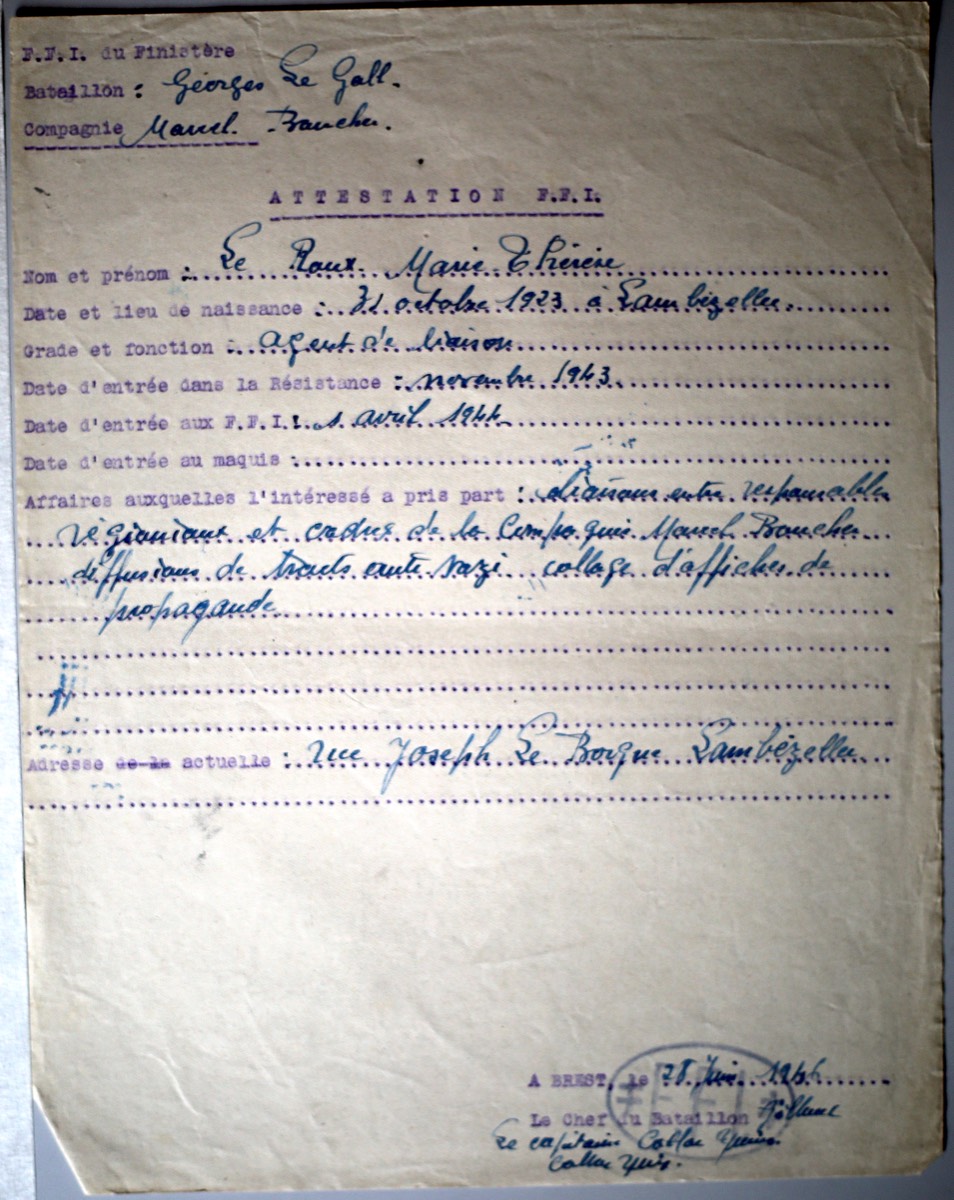 F.F.I. du Finistère
Bataillon : Georges Le Gall.
Compagnie Marcel Boucher.
ATTESTATION F.F.I.
Nom et prénom : Le Roux Marie Thérèse
Date et lieu de naissance : 31 octobre 1923 à Lambézellec.
Grade et fonction : agent de liaison
Date d'entrée dans la Résistance : novembre 1943.
Date d'entrée aux F.F.I. : 1 avril 1944
Date d'entrée au maquis :
Affaires auxquelles l'intéressé a pris part : liaisons entre responsables
régionaux et cadres de la Compagnie Marcel Boucher
diffusions de tracts anti nazi collage d'affiches de
propagande
Adresse de la actuelle : rue Joseph Le Borgne Lambézellec
A BREST, le 28 Juin 1946
Le Chef du Bataillon
Le capitaine